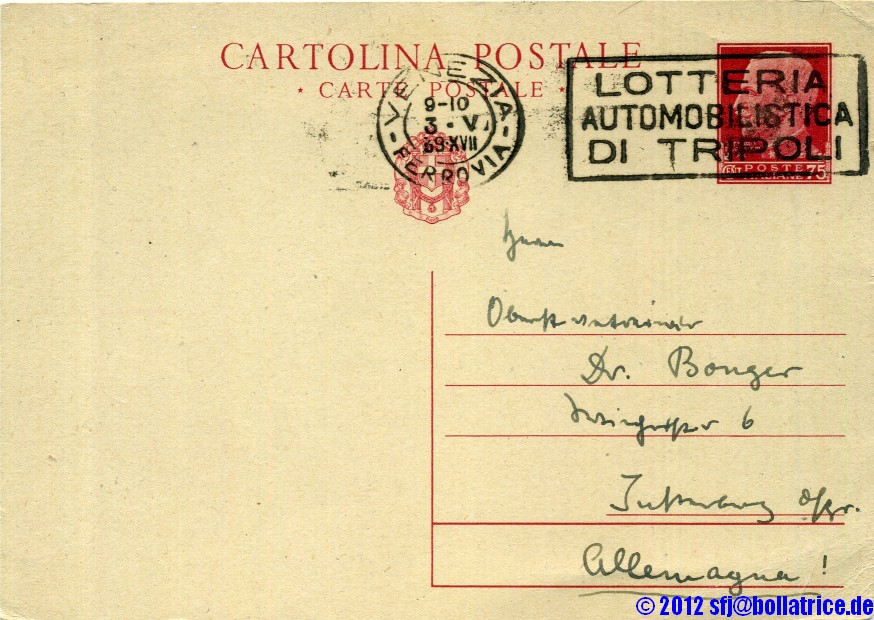 CARTOLINA POSTALE
* CARTE POSTALE *
VENEZIA
9-10
3·V
39·XVII
-FERROVIA-
LOTTERIA
AUTOMOBILISTICA
DI TRIPOLI
POSTE 75
Herrn
Oberstveterinär
Dr. Bonger
6
Insterburg Ostpr.
Allemagna!
© 2012 sfj@bollatrice.de